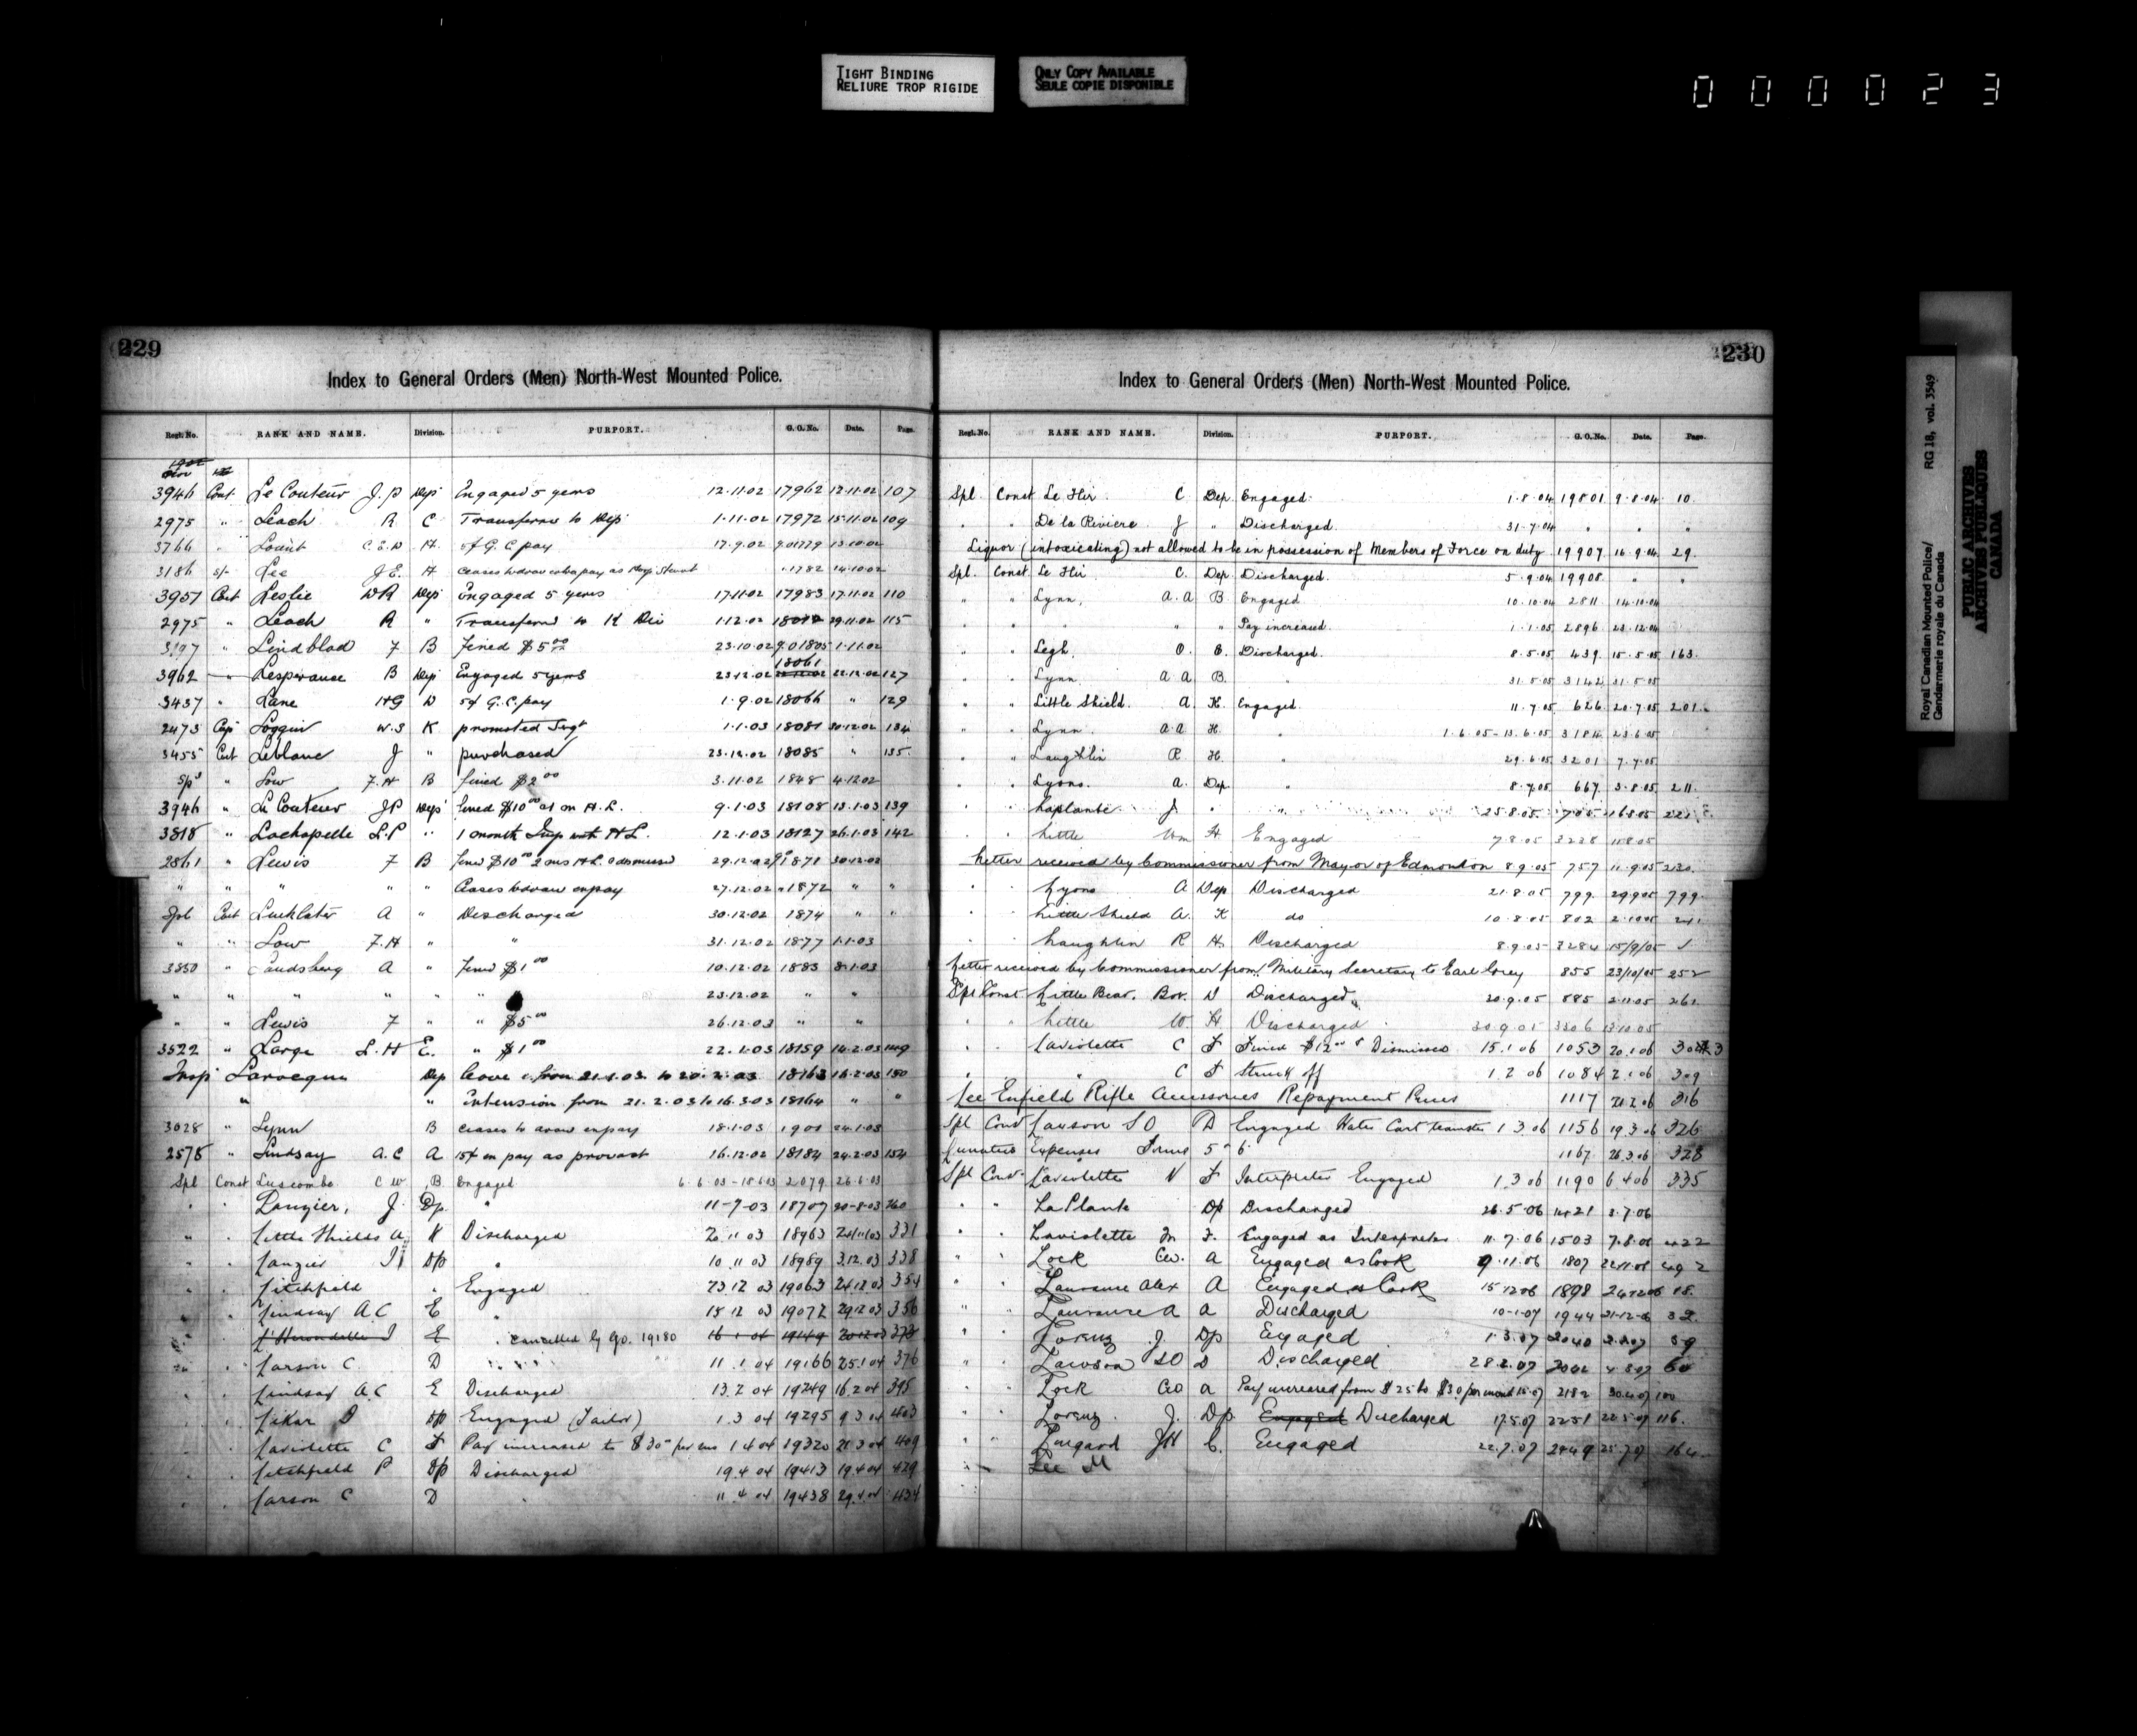 TIGHT BINDING
RELIURE TROP RIGIDE
ONLY COPY AVAILABLE
SEULE COPIE DISPONIBLE
000023
229
Index to General Orders (Men) North-West Mounted Police.
Regt. No. RANK AND NAME. Division. PURPORT. G. O. No. Date. Page.
1902
3946 Const Le Couteur J. P Dep Engaged 5 years 12.11.02 17962 12.11.02 107
2975 " Leach R C Transferred to Dep 1.11.02 17972 15.11.02 109
3766 " C.E.D H. 5¢ G. C pay 17.9.02 13.10.02
3186 S/- Lee J E. H Ceases to draw extra pay as 1782 14.10.02
3957 Const Leslie W R Dep Engaged 5 years 17.11.02 17983 17.11.02 110
2975 " Leach R " Transferred to K Div 1.12.02 29.11.02 115
3197 " Lindblad F B Fined $5.00 23.10.02 1805 1.11.02
3962 " Lesperance B Dep Engaged 5 years 23.12.02 18061 22.12.02 127
3437 " Lane H G D 5¢ G. C. pay 1.9.02 18066 " 129
2473 Corp Loggin W. S K promoted Sergt 1.1.03 18081 30.12.02 134
3455 Const Leblanc J " purchased 23.12.02 18085 " 135
Spl " Low F. H B fined $2.00 3.11.02 1848 4.12.02
3946 " Le Couteur J P Dep fined $10.00 H. L. 9.1.03 18108 13.1.03 139
3818 " Lachapelle L. P " 1 month Imp with H L. 12.1.03 18127 26.1.03 142
2861 " Lewis F B fined $10.00 2 mos H L & dismissed 29.12.02 1871 30.12.02
" " " " " Ceases to draw ex pay 27.12.02 1872 " "
Spl Const A " Discharged 30.12.02 1874 " "
" " Low F. H " " 31.12.02 1877 1.1.03
3850 " Landsberg A " Fined $1.00 10.12.02 1883 8.1.03
" " " " " " 23.12.02 " "
" " Lewis F " " $5.00 26.12.03 " "
3522 " Large L. H E. " $1.00 22.1.03 18159 14.2.03 149
Insp Larocque Dep Leave from 21.1.03 to 20.2.03 18163 16.2.03 150
" " extension from 21.2.03 to 16.3.03 18164 " "
3028 " Lynn B ceases to draw ex pay 18.1.03 1901 24.1.03
2575 " Lindsay A. C A 15¢ ex pay as provost 16.12.02 18184 24.2.03 154
Spl Const Luscombe C W B Engaged 6.6.03-18.6.03 2079 26.6.03
" " Lanzier, J Dp " 11-7-03 18707 20-8-03 260
" " Little Shields A K Discharged 2 11 03 18963 24/11/03 331
" " Lanzier J Dp " 10 11 03 18989 3.12.03 338
" " Litchfield " Engaged 23 12 03 19063 24.12.03 354
" " Lindsay A. C E " 15 12 03 19072 29.12.03 356
" " L'Hirondelle J E " cancelled by G.O. 19180 16 1 04 19149 373
" " Larson C. D " 11.1 04 19166 25.1 04 376
" " Lindsay A. C E Discharged 13.2 04 19249 16.2 04 395
" " Likar D Dp Engaged (Tailor) 1.3 04 19295 9.3 04 403
" " Laviolette C F Pay increased to $30.00 per mo 1 4 04 19320 21.3 04 409
" " Litchfield P Dp Discharged 19.4 04 19413 19.4 04 429
" " Larson C D " 11.4 04 19438 29.4 04 434
230
Index to General Orders (Men) North-West Mounted Police.
Regt. No. RANK AND NAME. Division. PURPORT. G. O. No. Date. Page.
Spl. Const Le Hir C Dep. Engaged. 1.8.04 19801 9.8.04 10.
" " De la Riviere J " Discharged. 31.7.04 " " "
Liquor (intoxicating) not allowed to be in possession of Members of Force on duty. 19907 16.9.04 29.
Spl. Const Le Hir C. Dep. Discharged. 5.9.04 19908 " "
" " Lynn, A. A B. Engaged 10.10.04 2811 14.10.04
" " " " " Pay increased. 1.1.05 2896 23.12.04
" " Legh. O. E. Discharged. 8.5.05 439 15.5.05 163.
" " Lynn A A B. " 31.5.05 3142 31.5.05
" " Little Shield. A. K. Engaged. 11.7.05 626 20.7.05 201.
" " Lynn. A. A H. " 1.6.05-13.6.05 3184 23.6.05
" " Laughlin R H. " 29.6.05 3201 7.7.05
" " Lyons. A. Dep. " 8.7.05 667 3.8.05 211.
" " Laplante J. " " 25.8.05 705 16.8.05
" " Little Wm H Engaged 7.8.05 3228 11.8.05
Letter received by Commissioner from Mayor of Edmonton 8.9.05 757 11.9.05 230.
" " Lyons A Dep Discharged 21.8.05 799 29.9.05 799.
" " Little Shield A. K do 10.8.05 802 2.10.05
" " Laughlin R H. Discharged 8.9.05 3284 15/9/05
Letter received by Commissioner from Military Secretary to Earl Grey 855 23/10/05 252
Spl Const Little Bear. Bow. D Discharged 20.9.05 885 2.11.05 261.
" " Little W. H Discharged 30.9.05 3306 13.10.05
" " Laviolette C F Fined $12.00 & Dismissed 15.1 06 1053 20.1 06
" " " C F Struck off 1.2 06 1084 2.1 06 309
Lee Enfield Rifle Accessories Repayment Prices 1117 21.2.06 316
Spl Const Lawson S O D Engaged Water Cart teamster 1 3.06 1156 19.3 06 326
Lunatics Expenses Forms 5 " 6 1167 26.3.06 328
Spl Const Laviolette N F Interpreter Engaged 1.3 06 1190 6.4 06 335
" " La Plante Dp Discharged 26.5.06 1421 3.7.06
" " Laviolette F. Engaged as Interpreter 11.7.06 1503 7.8.06 422
" " Lock Geo. A Engaged as Cook 9.11.06 1807 22.11.06 492
" " Laurence Alex A Engaged as Cook 15.12.06 1898 24.12.06 18.
" " Laurence A A Discharged 10-1-07 1944 21-12-06 32
" " Lorenz J. Dp Engaged 1.3.07 2040 59
" " Lawson S O D Discharged 28.2.07 60
" " Lock Geo A Pay increased from $25 to $30 per month 2182 30.4.07 100
" " Lorenz J. Dp Engaged Discharged 17.5.07 2251 22.5.07 116.
" " Lingard J H E. Engaged 22.7.07 2449 25.7.07 164
" " Lee M
Royal Canadian Mounted Police/
Gendarmerie royale du Canada
RG 18, vol. 3549
PUBLIC ARCHIVES
ARCHIVES PUBLIQUES
CANADA